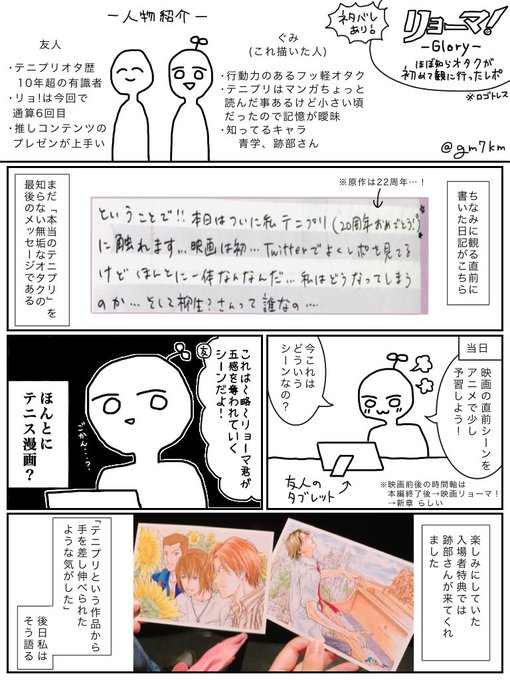 ー人物紹介ー
友人
・テニプリオタ歴
10年超の有識者
・リョ!は今回で
通算6回目
・推しコンテンツの
プレゼンが上手い
ぐみ
(これ描いた人)
・行動力のあるフッ軽オタク
・テニプリはマンガちょっと
読んだ事あるけど小さい頃
だったので記憶が曖昧
・知ってるキャラ
青学、跡部さん
ネタバレ
あり!
リョーマ!
ーGloryー
ほぼ知らオタクが
初めて観に行ったレポ
※ロゴトレス
@gm7km
ちなみに観る直前に
書いた日記がこちら
※原作は22周年…!
ということで!!本日はついに私テニプリ(20周年おめでとう!)
に触れます…映画は初…Twitterでよくレポも見てる
けどほんとに一体なんなんだ…私はどうなってしまう
のか…そして柳生?さんって誰なの…
まだ「本当のテニプリ」を
知らない無垢なオタクの
最後のメッセージである
当日
映画の直前シーンを
アニメで少し
予習しよう!
今これは
どういう
シーンなの?
友人の
タブレット
※映画前後の時間軸は
本編終了後→映画リョーマ!
→新章 らしい
友
これは〜略〜リョーマ君が
五感を奪われていく
シーンだよ!
ごかん…?
ほんとに
テニス漫画?
楽しみにしていた
入場者特典では
跡部さんが来てくれ
ました
「テニプリという作品から
手を差し伸べられた
ような気がした」
後日私は
そう語る